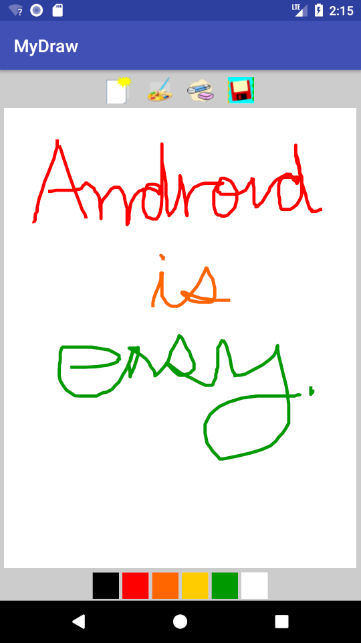 2:15
MyDraw
Android
is
easy.